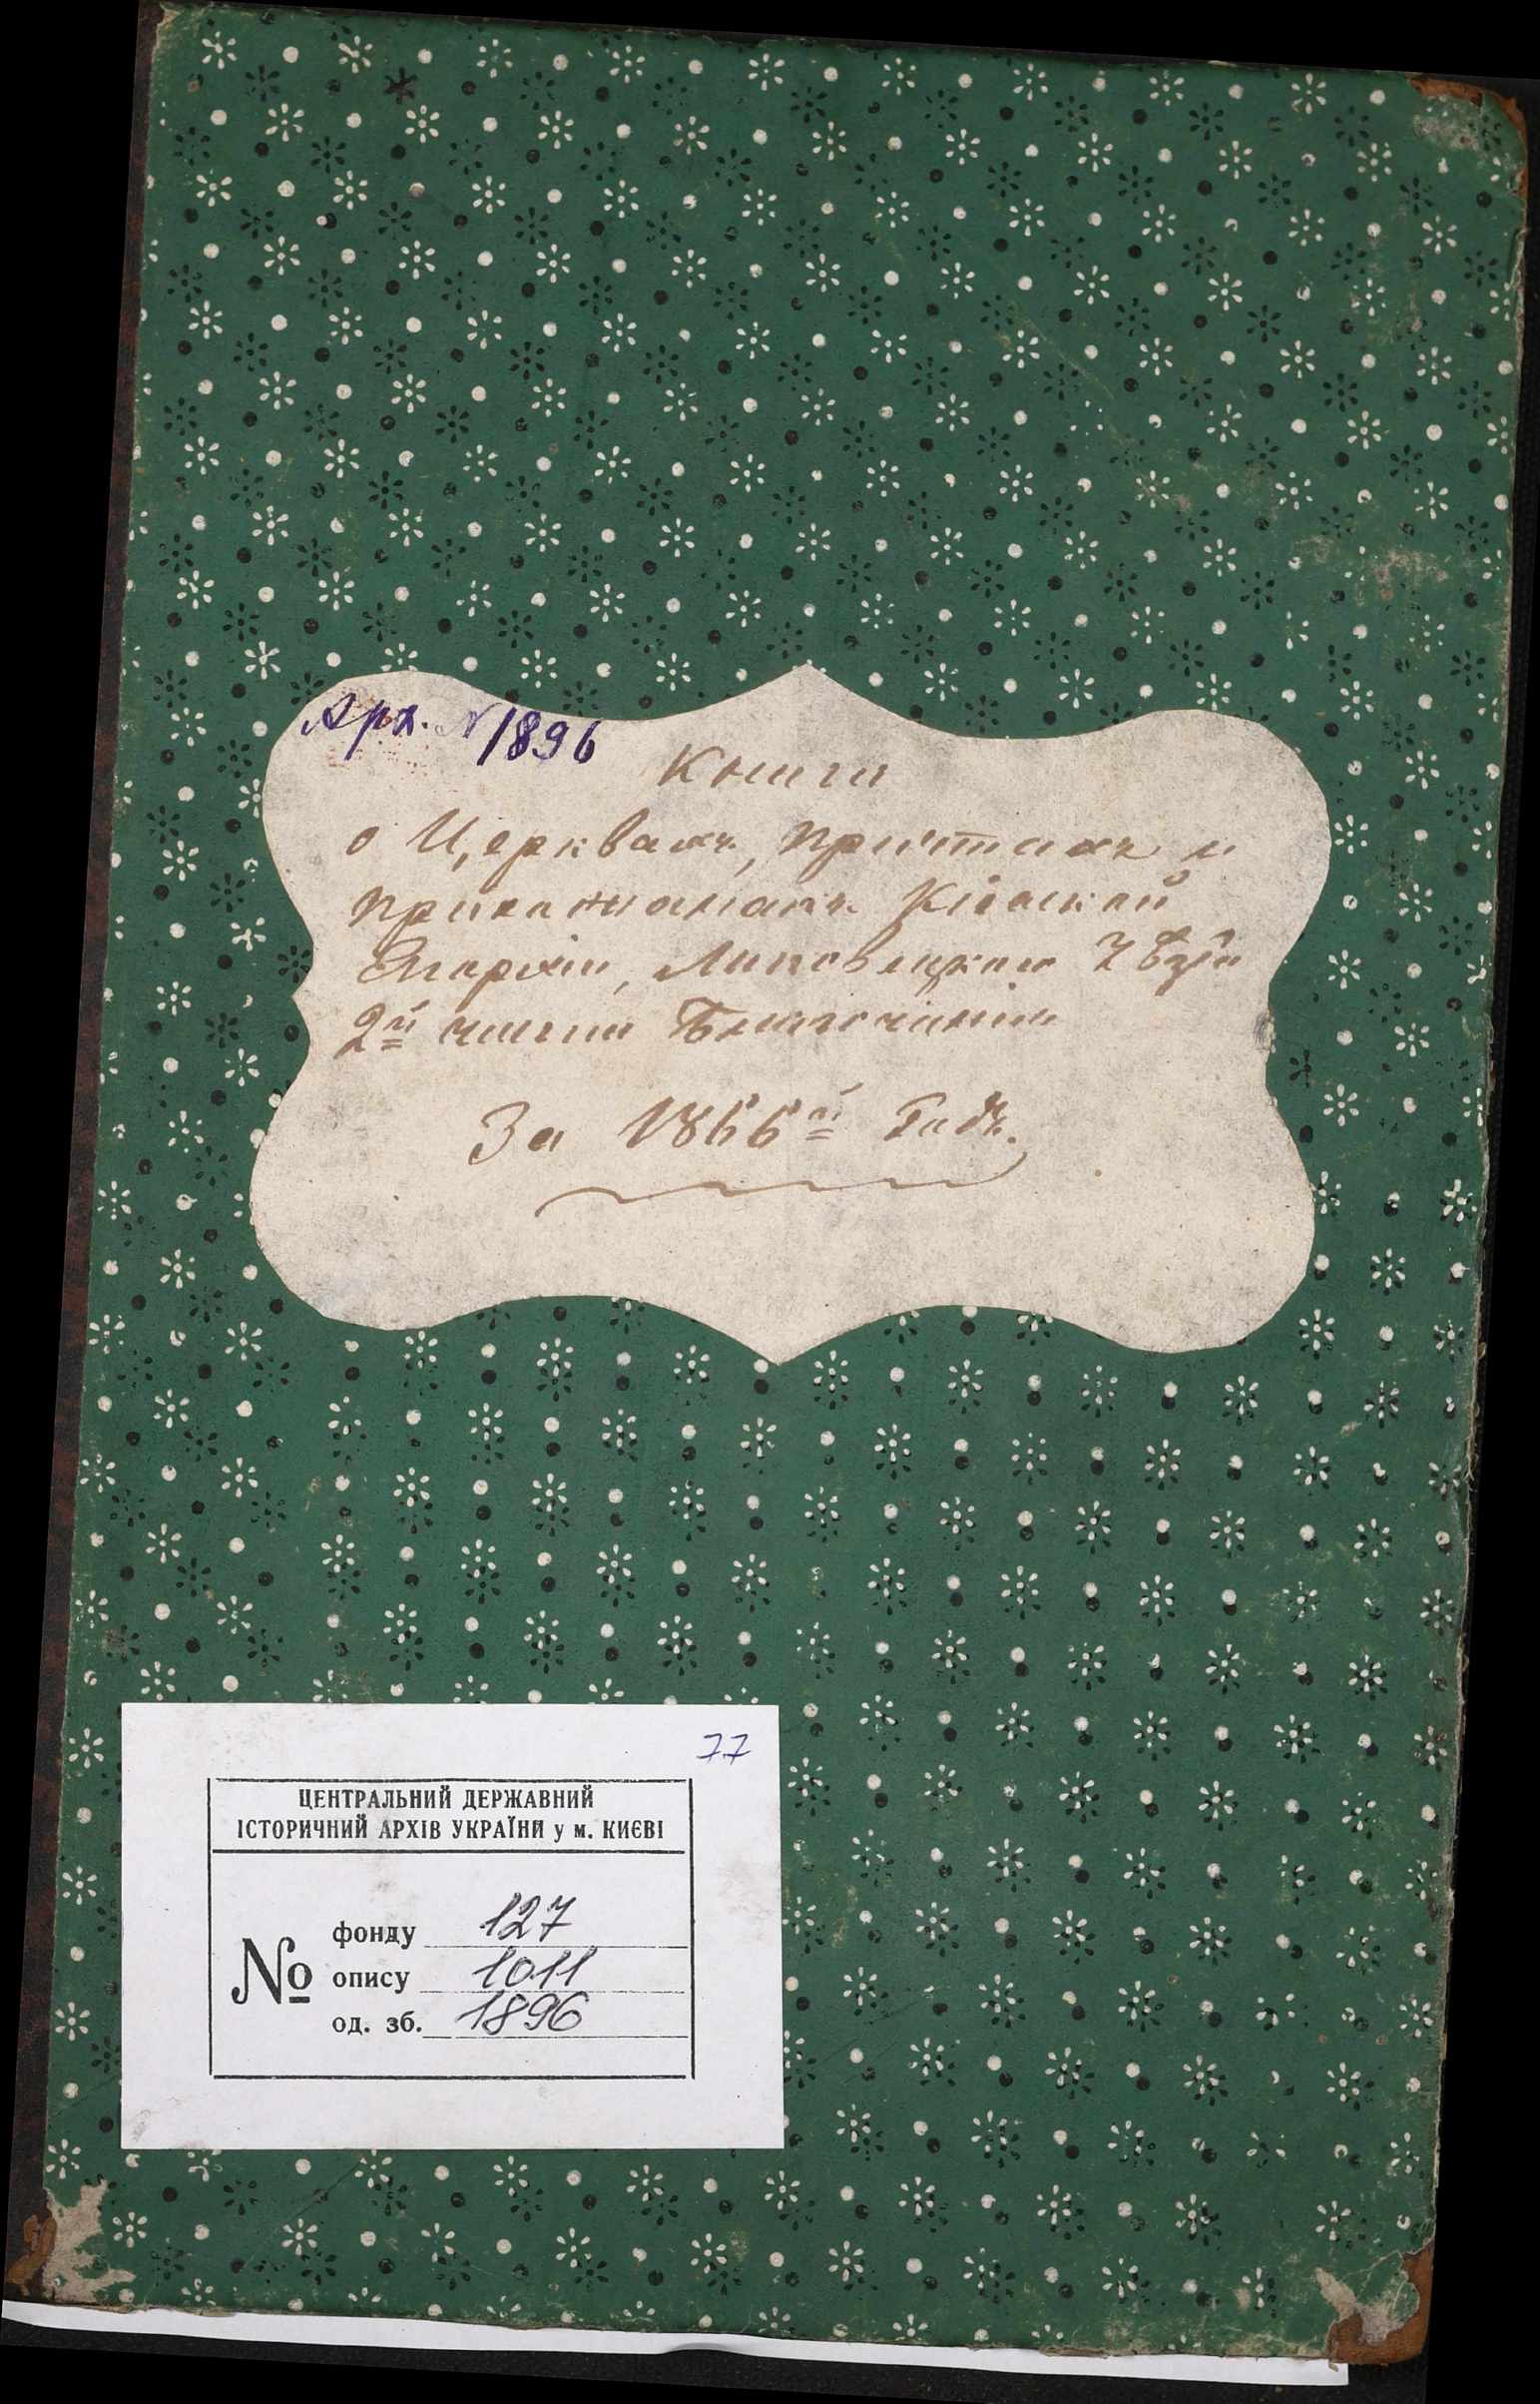 Арх. N 1896
Книга
о Церквахъ, причтахъ и
прихожанахъ Кіевской
Епархіи, Липовецкаго Уѣзда
2й части Благочинія
За 1866й Годъ.
77
ЦЕНТРАЛЬНИЙ ДЕРЖАВНИЙ
ІСТОРИЧНИЙ АРХІВ УКРАЇНИ у м. КИЄВІ
№ фонду 127
опису 1011
од. зб. 1896